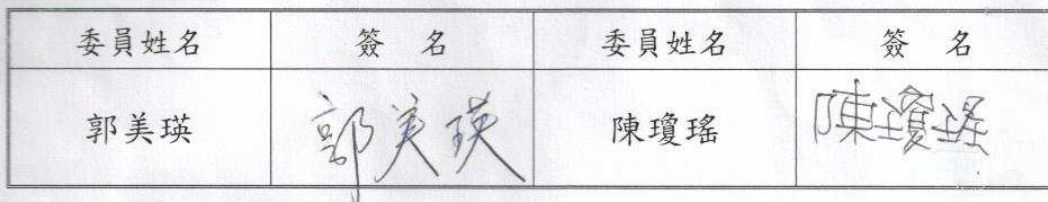 委員姓名 簽 名 委員姓名 簽 名
郭美瑛 郭美瑛 陳瓊瑤 陳瓊瑤